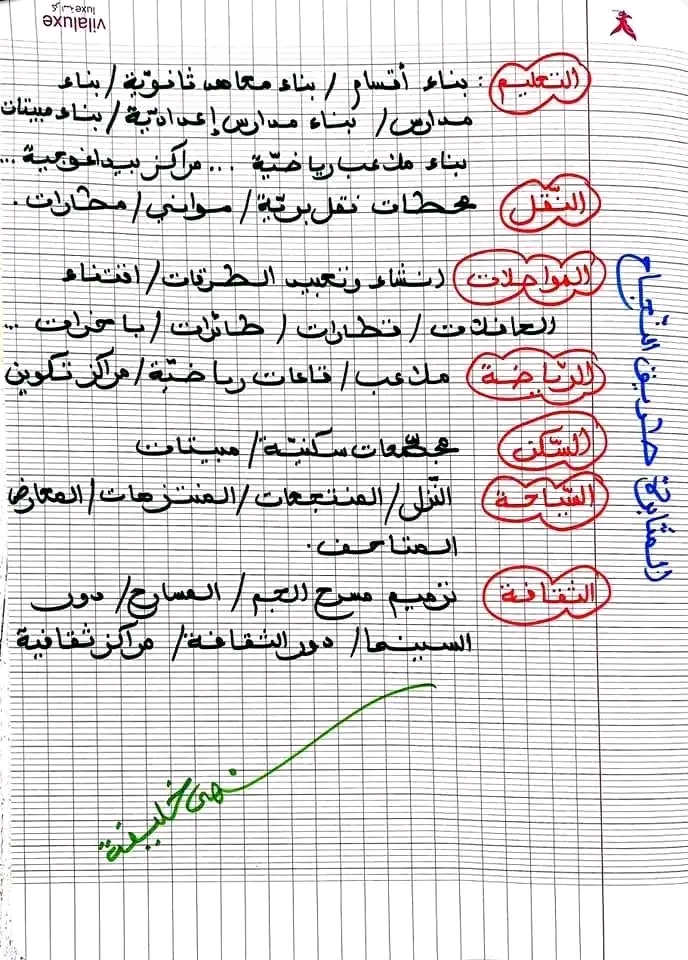 vilaluxe
التعليم : بناء أقسام / بناء معاهد ثانويّة / بناء
مدارس / بناء مدارس إعداديّة / بناء مبيتات
بناء ملاعب رياضيّة ... مراكز بيداغوجية ...
النّقل محطات نقل بريّة / موانئ / مطارات .
المواصلات إنشاء وتعبيد الطرقات / اقتناء
الحافلات / قطارات / طائرات / باخرات ...
الرّياضة ملاعب / قاعات رياضيّة / مراكز تكوين
السّكن مجمّعات سكنيّة / مبيتات
السّياحة النّزل / المنتجعات / المنتزهات / المعارض
المتاحف .
الثقافة ترميم مسرح الجم / المسارح / دور
السينما / دور الثقافة / مراكز ثقافية
المشاريع طريق النجاح
نهى خليفة